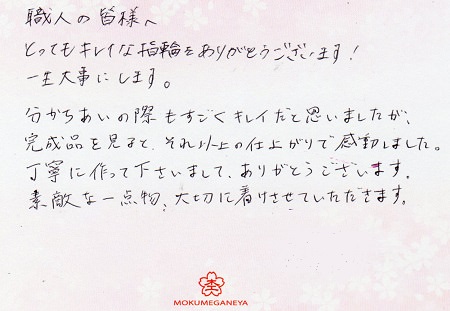 職人の皆様へ
とってもキレイな指輪をありがとうございます!
一生大事にします。
分かちあいの際もすごくキレイだと思いましたが、
完成品を見ると、それ以上の仕上がりで感動しました。
丁寧に作って下さいまして、ありがとうございます。
素敵な一点物、大切に着けさせていただきます。
MOKUMEGANEYA